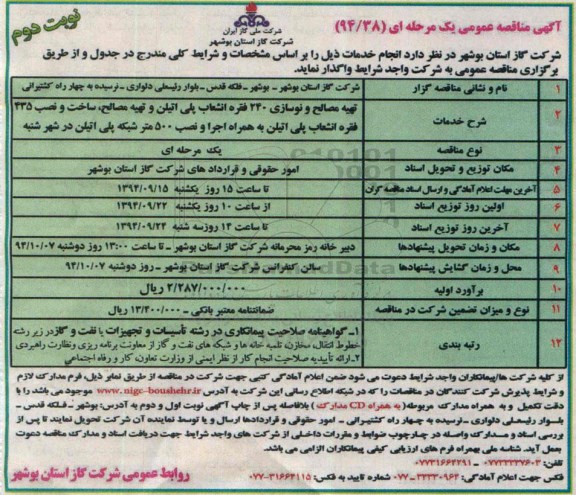 آگهی مناقصه عمومی یک مرحله ای (۹۴/۳۸)
شرکت ملی گاز ایران
شرکت گاز استان بوشهر
نوبت دوم
شرکت گاز استان بوشهر در نظر دارد انجام خدمات ذیل را بر اساس مشخصات و شرایط کلی مندرج در جدول و از طریق
برگزاری مناقصه عمومی به شرکت واجد شرایط واگذار نماید.
۱ نام و نشانی مناقصه گزار شرکت گاز استان بوشهر - بوشهر - فلکه قدس - بلوار رئیسعلی دلواری - نرسیده به چهار راه کشتیرانی
۲ شرح خدمات تهیه مصالح و نوسازی ۲۴۰ فقره انشعاب پلی اتیلن و تهیه مصالح، ساخت و نصب ۴۳۵
فقره انشعاب پلی اتیلن به همراه اجرا و نصب ۵۰۰ متر شبکه پلی اتیلن در شهر شنبه
۳ نوع مناقصه یک مرحله ای
۴ مکان توزیع و تحویل اسناد امور حقوقی و قرارداد های شرکت گاز استان بوشهر
۵ آخرین مهلت اعلام آمادگی و ارسال اسناد مناقصه گران تا ساعت ۱۵ روز یکشنبه ۱۳۹۴/۰۹/۱۵
۶ اولین روز توزیع اسناد از ساعت ۱۰ روز یکشنبه ۱۳۹۴/۰۹/۲۲
۷ آخرین روز توزیع اسناد تا ساعت ۱۴ روز سه شنبه ۱۳۹۴/۰۹/۲۴
۸ مکان و زمان تحویل پیشنهادها دبیر خانه رمز محرمانه شرکت گاز استان بوشهر - تا ساعت ۱۳:۰۰ روز دوشنبه ۹۴/۱۰/۰۷
۹ محل و زمان گشایش پیشنهادها سالن کنفرانس شرکت گاز استان بوشهر - روز دوشنبه ۹۴/۱۰/۰۷
۱۰ برآورد اولیه ۲/۲۸۷/۰۰۰/۰۰۰ ریال
۱۱ نوع و میزان تضمین شرکت در مناقصه ضمانتنامه معتبر بانکی - ۱۳/۴۰۰/۰۰۰ ریال
۱۲ رتبه بندی ۱- گواهینامه صلاحیت پیمانکاری در رشته تأسیسات و تجهیزات یا نفت و گاز در زیر رشته
خطوط انتقال، مخازن، تلمبه خانه ها و شبکه های نفت و گاز از معاونت برنامه ریزی و نظارت راهبردی
۲- ارائه تأییدیه صلاحیت انجام کار از نظر ایمنی از وزارت تعاون، کار و رفاه اجتماعی
از کلیه شرکت ها/پیمانکاران واجد شرایط دعوت می شود ضمن اعلام آمادگی کتبی جهت شرکت در مناقصه از طریق نمابر ذیل، فرم مدارک لازم
و شرایط پذیرش شرکت کنندگان در مناقصات را که در شبکه اطلاع رسانی این شرکت به آدرس www.nigc-boushehr.ir موجود می باشد را با
دقت تکمیل و به همراه مدارک مربوطه (به همراه CD مدارک) بلافاصله پس از چاپ آگهی نوبت اول و دوم به آدرس: بوشهر - فلکه قدس -
بلوار رئیسعلی دلواری - نرسیده به چهار راه کشتیرانی - امور حقوقی و قراردادها ارسال و یا توسط نماینده آن شرکت تحویل نمایند تا پس از
بررسی اسناد و مدارک واصله در چارچوب ضوابط و مقررات داخلی از شرکت های واجد شرایط جهت دریافت اسناد و مدارک مناقصه دعوت
بعمل آید. شناسه ملی بهمراه فرم های ارزیابی کیفی پیمانکاران الزامی می باشد.
تلفن: ۰۷۷۳۳۳۲۷۶۰۳ - ۰۷۷۳۱۶۶۲۲۹۱
فکس جهت اعلام آمادگی: ۳۳۳۳۰۹۶۲-۰۷۷ شماره تایید به فکس: ۳۱۶۶۴۱۱۵-۰۷۷
روابط عمومی شرکت گاز استان بوشهر